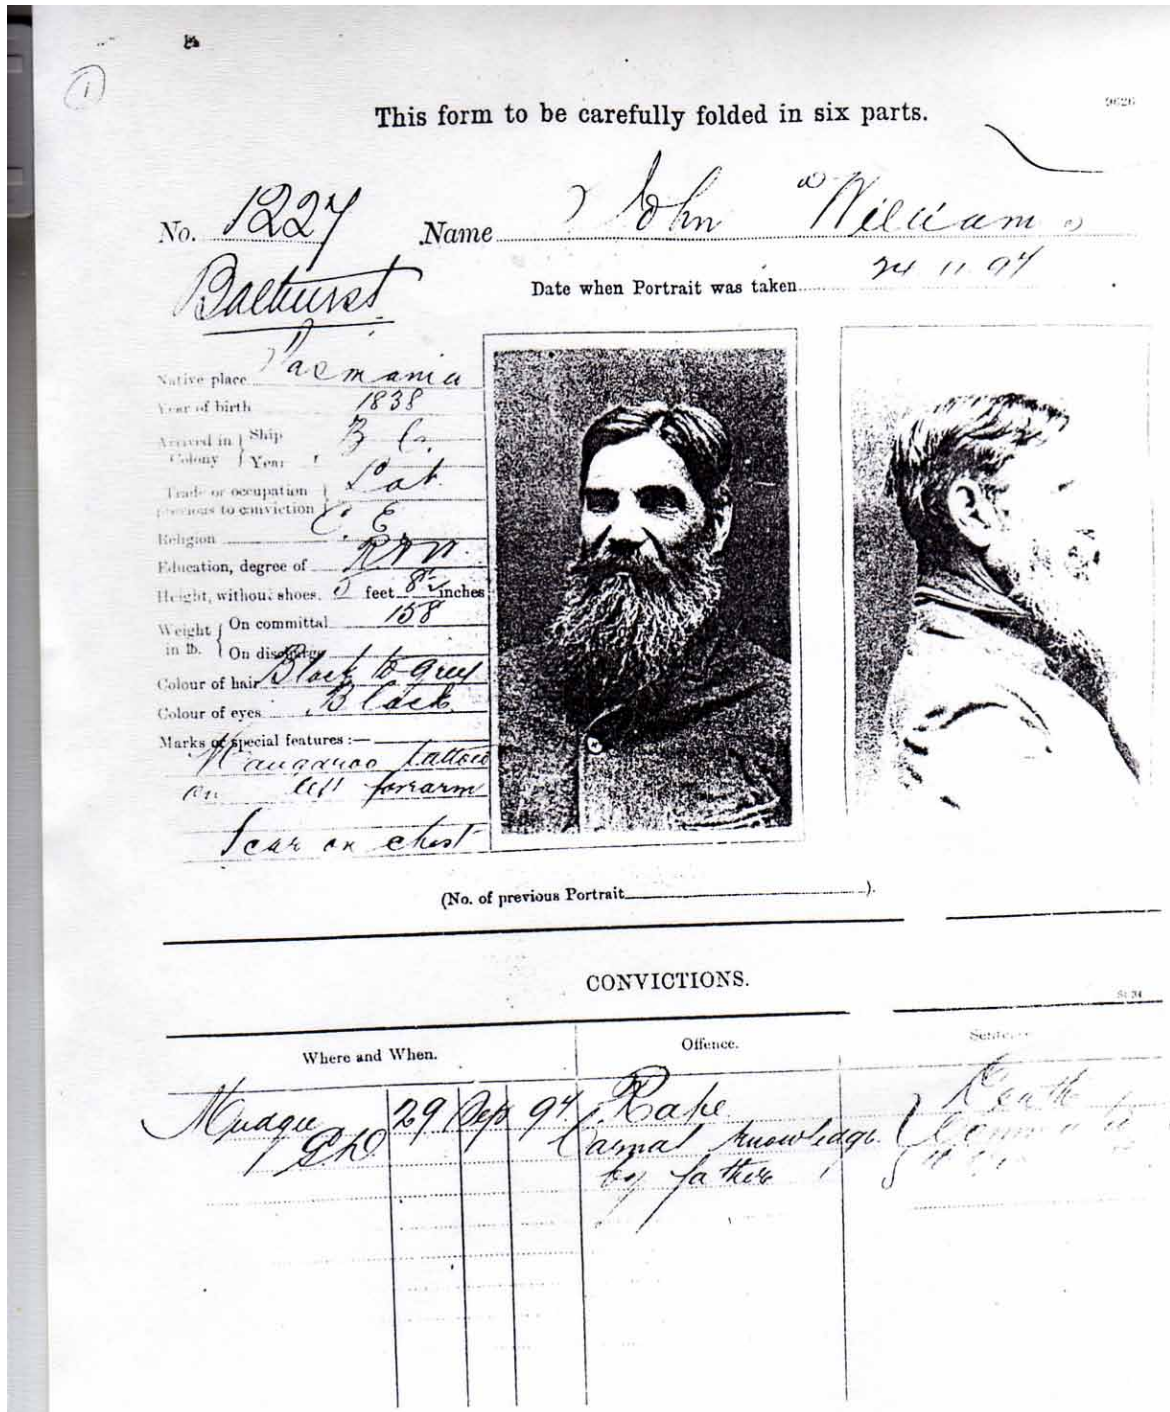 1
This form to be carefully folded in six parts.
9626
No. 1227 Name John Williams
Bathurst
Date when Portrait was taken 24 11 94
Native place Tasmania
Year of birth 1838
Arrived in Colony { Ship B C.
Year
Trade or occupation previous to conviction } Lab.
Religion C. E
Education, degree of R & W.
Height, without shoes. 5 feet 8½ inches
Weight in lb. { On committal 158
On discharge
Colour of hair Black to grey
Colour of eyes Black
Marks or special features :—
Kangaroo tattooed
on left forearm
Scar on chest
(No. of previous Portrait ).
CONVICTIONS.
Where and When. Offence. Sentence
Mudgee 29 Sep 94 Rape Death
Carnal knowledge
by father